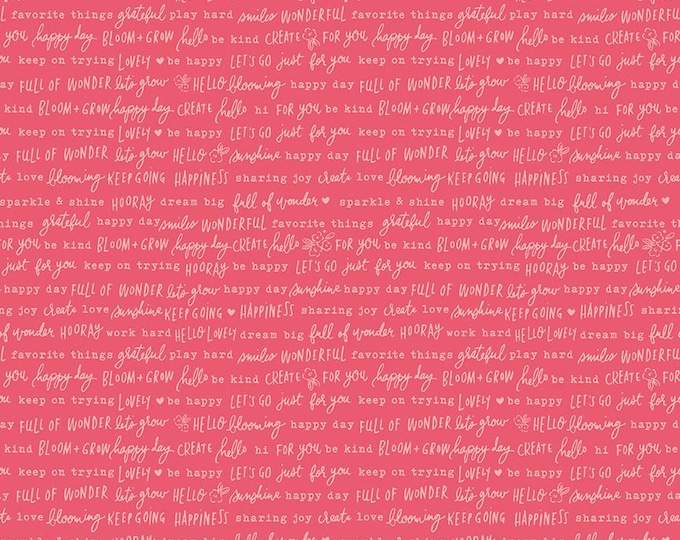 favorite things grateful play hard smiles WONDERFUL favorite things grateful play hard smiles WONDERFUL
you happy day BLOOM + GROW hello be kind CREATE FOR YOU happy day BLOOM + GROW hello be kind CREATE FOR
keep on trying LOVELY ♥ be happy LET'S GO just for you keep on trying LOVELY ♥ be happy LET'S GO just for you
day FULL OF WONDER let's grow HELLO blooming happy day FULL OF WONDER let's grow HELLO blooming
kind BLOOM + GROW happy day CREATE hello hi FOR YOU be kind BLOOM + GROW happy day CREATE hello hi FOR YOU be
keep on trying LOVELY ♥ be happy LET'S GO just for you keep on trying LOVELY ♥ be happy LET'S GO just for you
FULL OF WONDER let's grow HELLO sunshine happy day FULL OF WONDER let's grow HELLO sunshine happy day
create love blooming KEEP GOING HAPPINESS sharing joy create love blooming KEEP GOING HAPPINESS sharing joy
sparkle & shine HOORAY dream big full of wonder ♥ sparkle & shine HOORAY dream big full of wonder ♥
things grateful happy day smiles WONDERFUL favorite things grateful happy day smiles WONDERFUL favorite
FOR YOU be kind BLOOM + GROW happy day CREATE hello FOR YOU be kind BLOOM + GROW happy day CREATE hello
just for you keep on trying HOORAY be happy LET'S GO just for you keep on trying HOORAY be happy LET'S GO
happy day FULL OF WONDER let's grow happy day sunshine happy day FULL OF WONDER let's grow happy day sunshine
sharing joy create love sunshine KEEP GOING ♥ HAPPINESS sharing joy create love sunshine KEEP GOING ♥ HAPPINESS
full of wonder HOORAY work hard HELLO LOVELY dream big full of wonder HOORAY work hard HELLO LOVELY dream big full
favorite things grateful play hard smiles WONDERFUL favorite things grateful play hard smiles WONDERFUL
you happy day BLOOM + GROW hello be kind CREATE FOR YOU happy day BLOOM + GROW hello be kind CREATE FOR
keep on trying LOVELY ♥ be happy LET'S GO just for you keep on trying LOVELY ♥ be happy LET'S GO just for you
day FULL OF WONDER let's grow HELLO blooming happy day FULL OF WONDER let's grow HELLO blooming
kind BLOOM + GROW happy day CREATE hello hi FOR YOU be kind BLOOM + GROW happy day CREATE hello hi FOR YOU be
keep on trying LOVELY ♥ be happy LET'S GO just for you keep on trying LOVELY ♥ be happy LET'S GO just for you
FULL OF WONDER let's grow HELLO sunshine happy day FULL OF WONDER let's grow HELLO sunshine happy day
create love blooming KEEP GOING HAPPINESS sharing joy create love blooming KEEP GOING HAPPINESS sharing joy